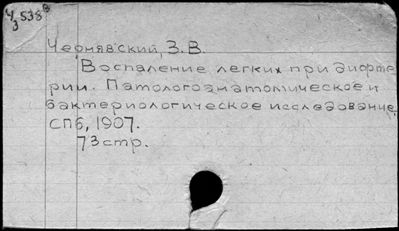 Ч 538 в
3
Чернявский, З. В.
Воспаление легких при дифте
рии. Патологоанатомическое и
бактериологическое исследование.
СПб, 1907.
73 стр.